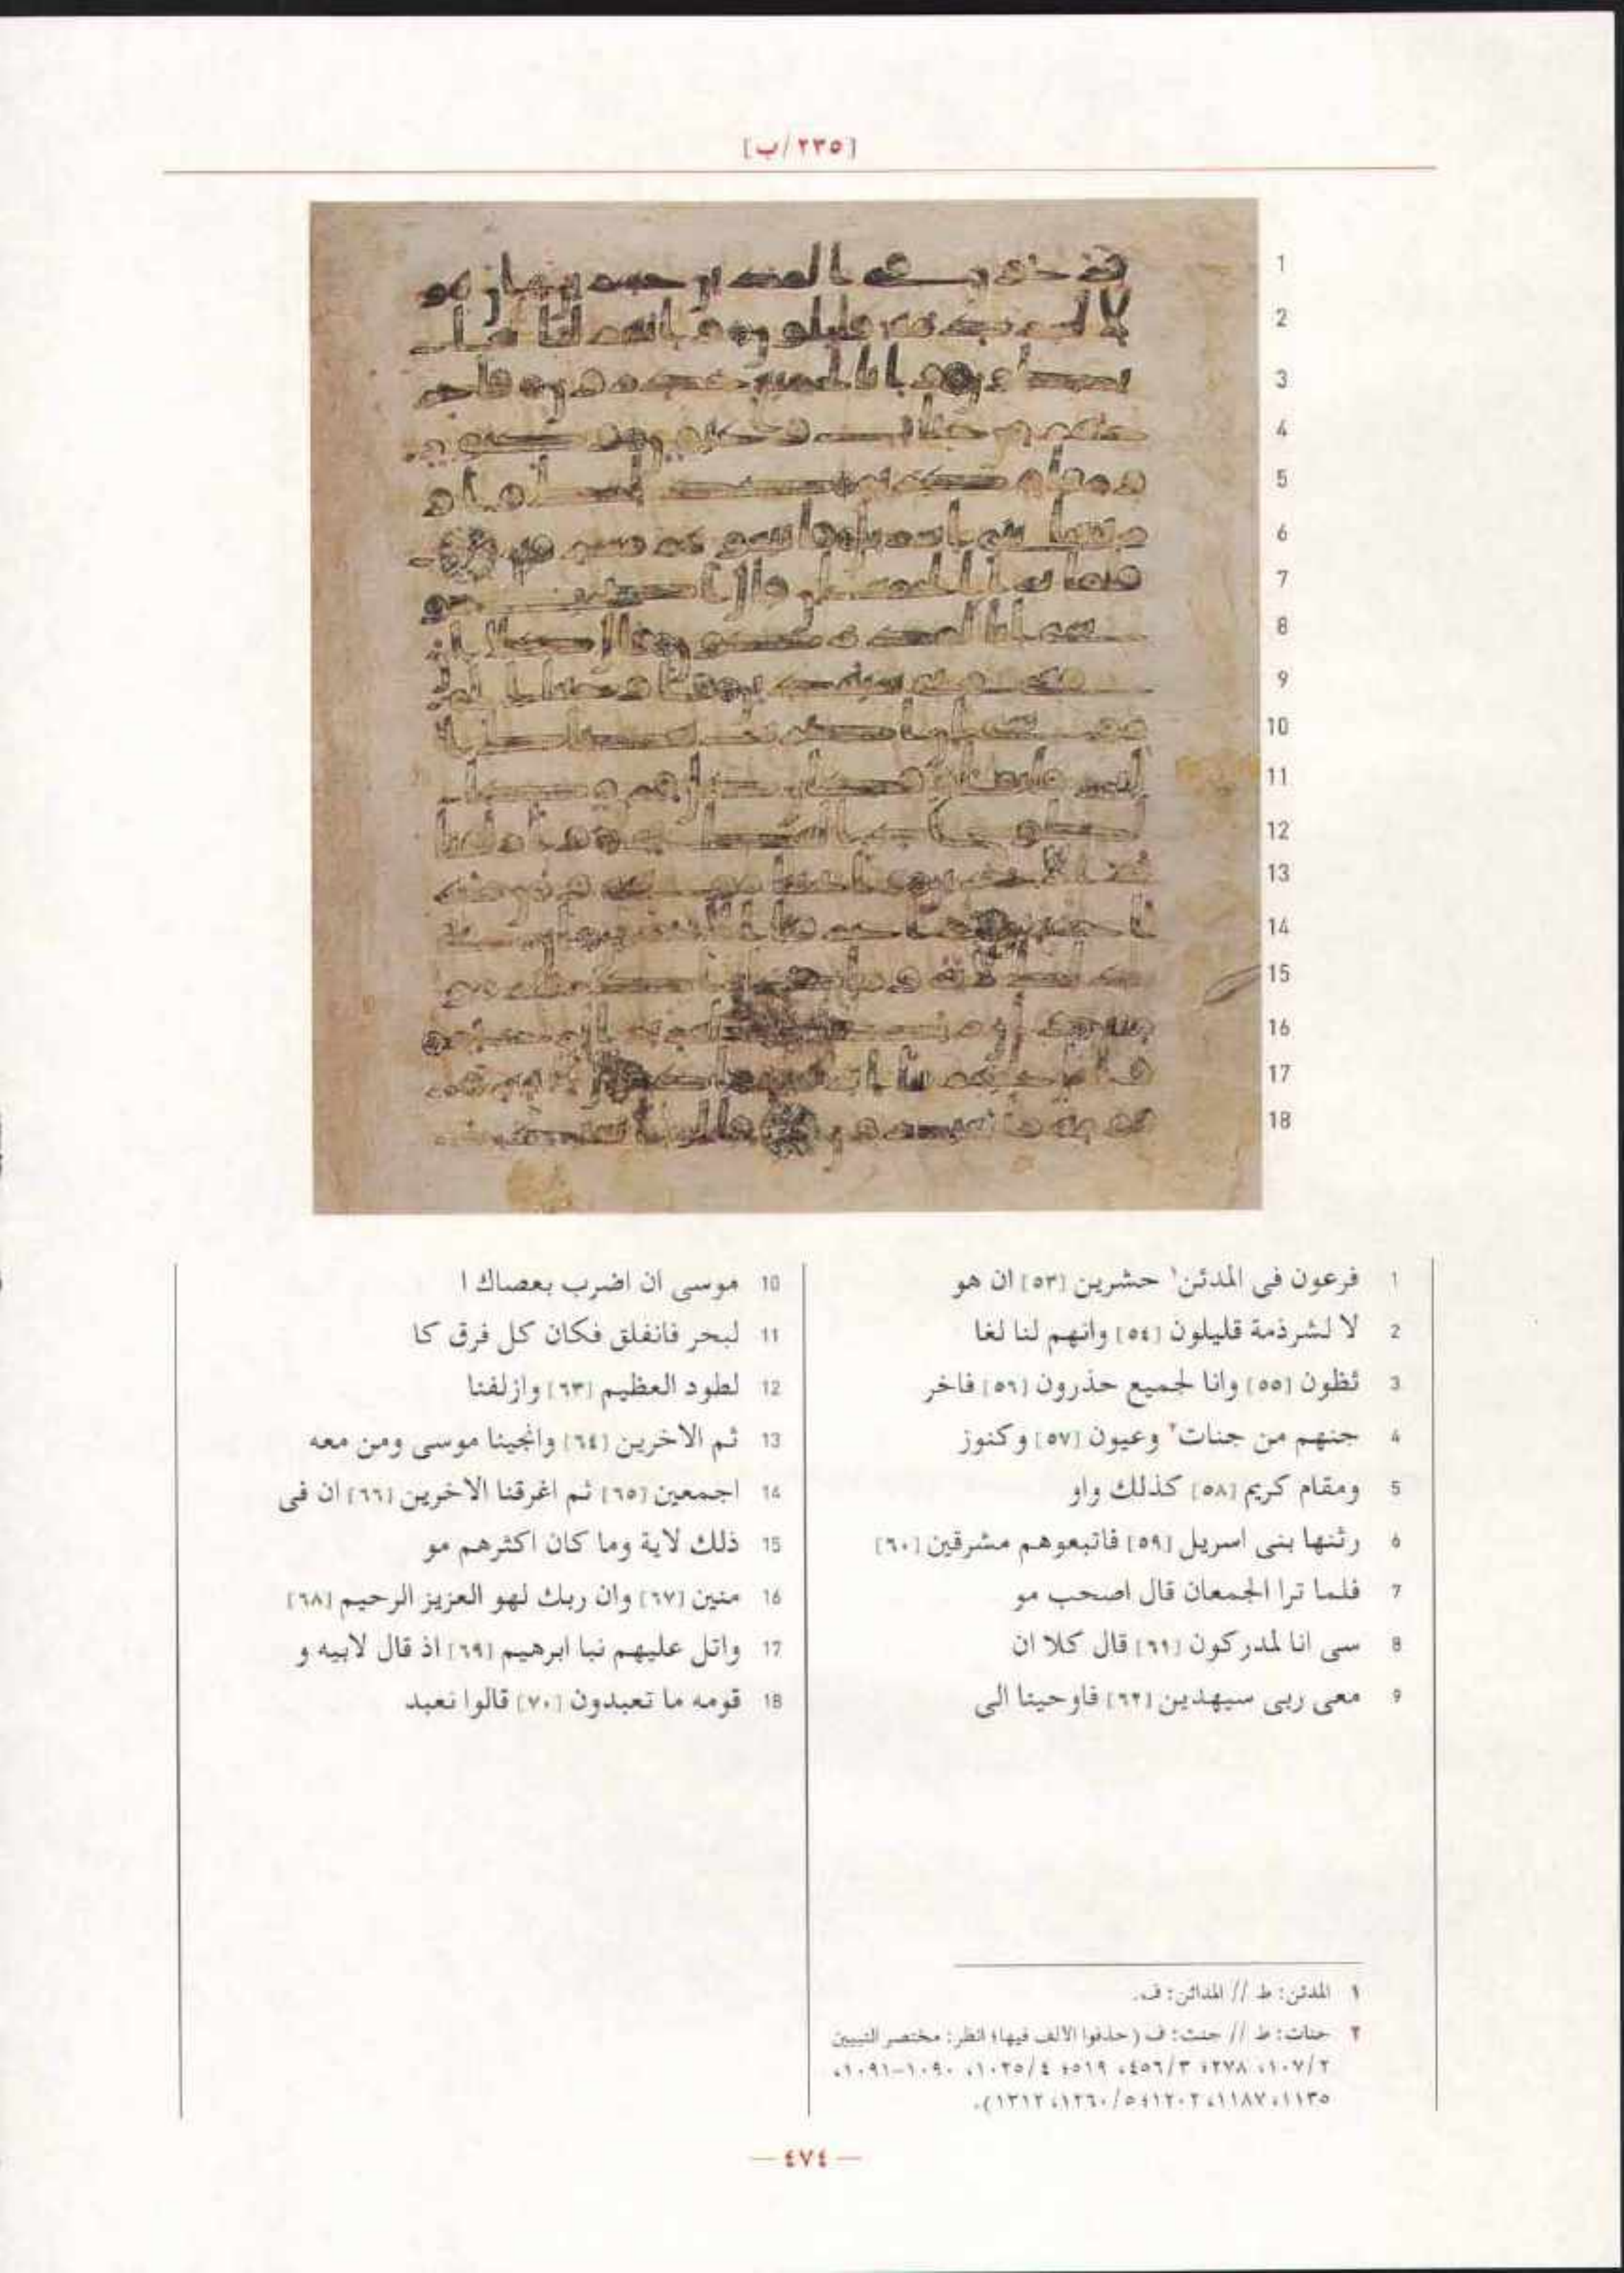 [٢٣٥/ب]
1 فرعون فى المدئن١ حشرين [٥٣] ان هو
2 لا لشرذمة قليلون [٥٤] وانهم لنا لغا
3 ئظون [٥٥] وانا لجميع حذرون [٥٦] فاخر
4 جنهم من جنات٢ وعيون [٥٧] وكنوز
5 ومقام كريم [٥٨] كذلك واو
٦ رثنها بنى اسريل [٥٩] فاتبعوهم مشرقين [٦٠]
7 فلما ترا الجمعان قال اصحب مو
8 سى انا لمدركون [٦١] قال كلا ان
9 معى ربى سيهدين [٦٢] فاوحينا الى
10 موسى ان اضرب بعصاك ا
11 لبحر فانفلق فكان كل فرق كا
12 لطود العظيم [٦٣] وازلفنا
13 ثم الاخرين [٦٤] وانجينا موسى ومن معه
14 اجمعين [٦٥] ثم اغرقنا الاخرين [٦٦] ان فى
15 ذلك لاية وما كان اكثرهم مو
16 منين [٦٧] وان ربك لهو العزيز الرحيم [٦٨]
17 واتل عليهم نبا ابرهيم [٦٩] اذ قال لابيه و
18 قومه ما تعبدون [٧٠] قالوا نعبد
١ المدئن: ط // المدائن: ف.
٢ جنات: ط // جنت: ف (حذفوا الالف فيها؛ انظر: مختصر التبيين
٢/١٠٧، ٢٧٨؛ ٣/٤٥٦، ٥١٩؛ ٤/١٠٢٥، ١٠٩٠-١٠٩١،
١١٣٥، ١١٨٧، ١٢٠٢؛ ٥/١٢٦٠، ١٣١٢).
— ٤٧٤ —